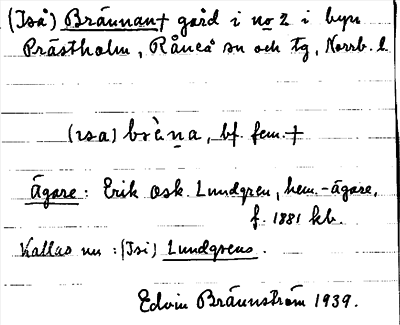 (Iså) Brännan † gård i no 2 i byn
Prästholm, Råneå sn och tg, Norrb. l.
(ısa) brὲna, bf. fem. †
Ägare: Erik Osk. Lundgren, hem.-ägare,
f. 1881 kb.
Kallas nu: (Isi) Lundgrens.
Edvin Brännström 1939.